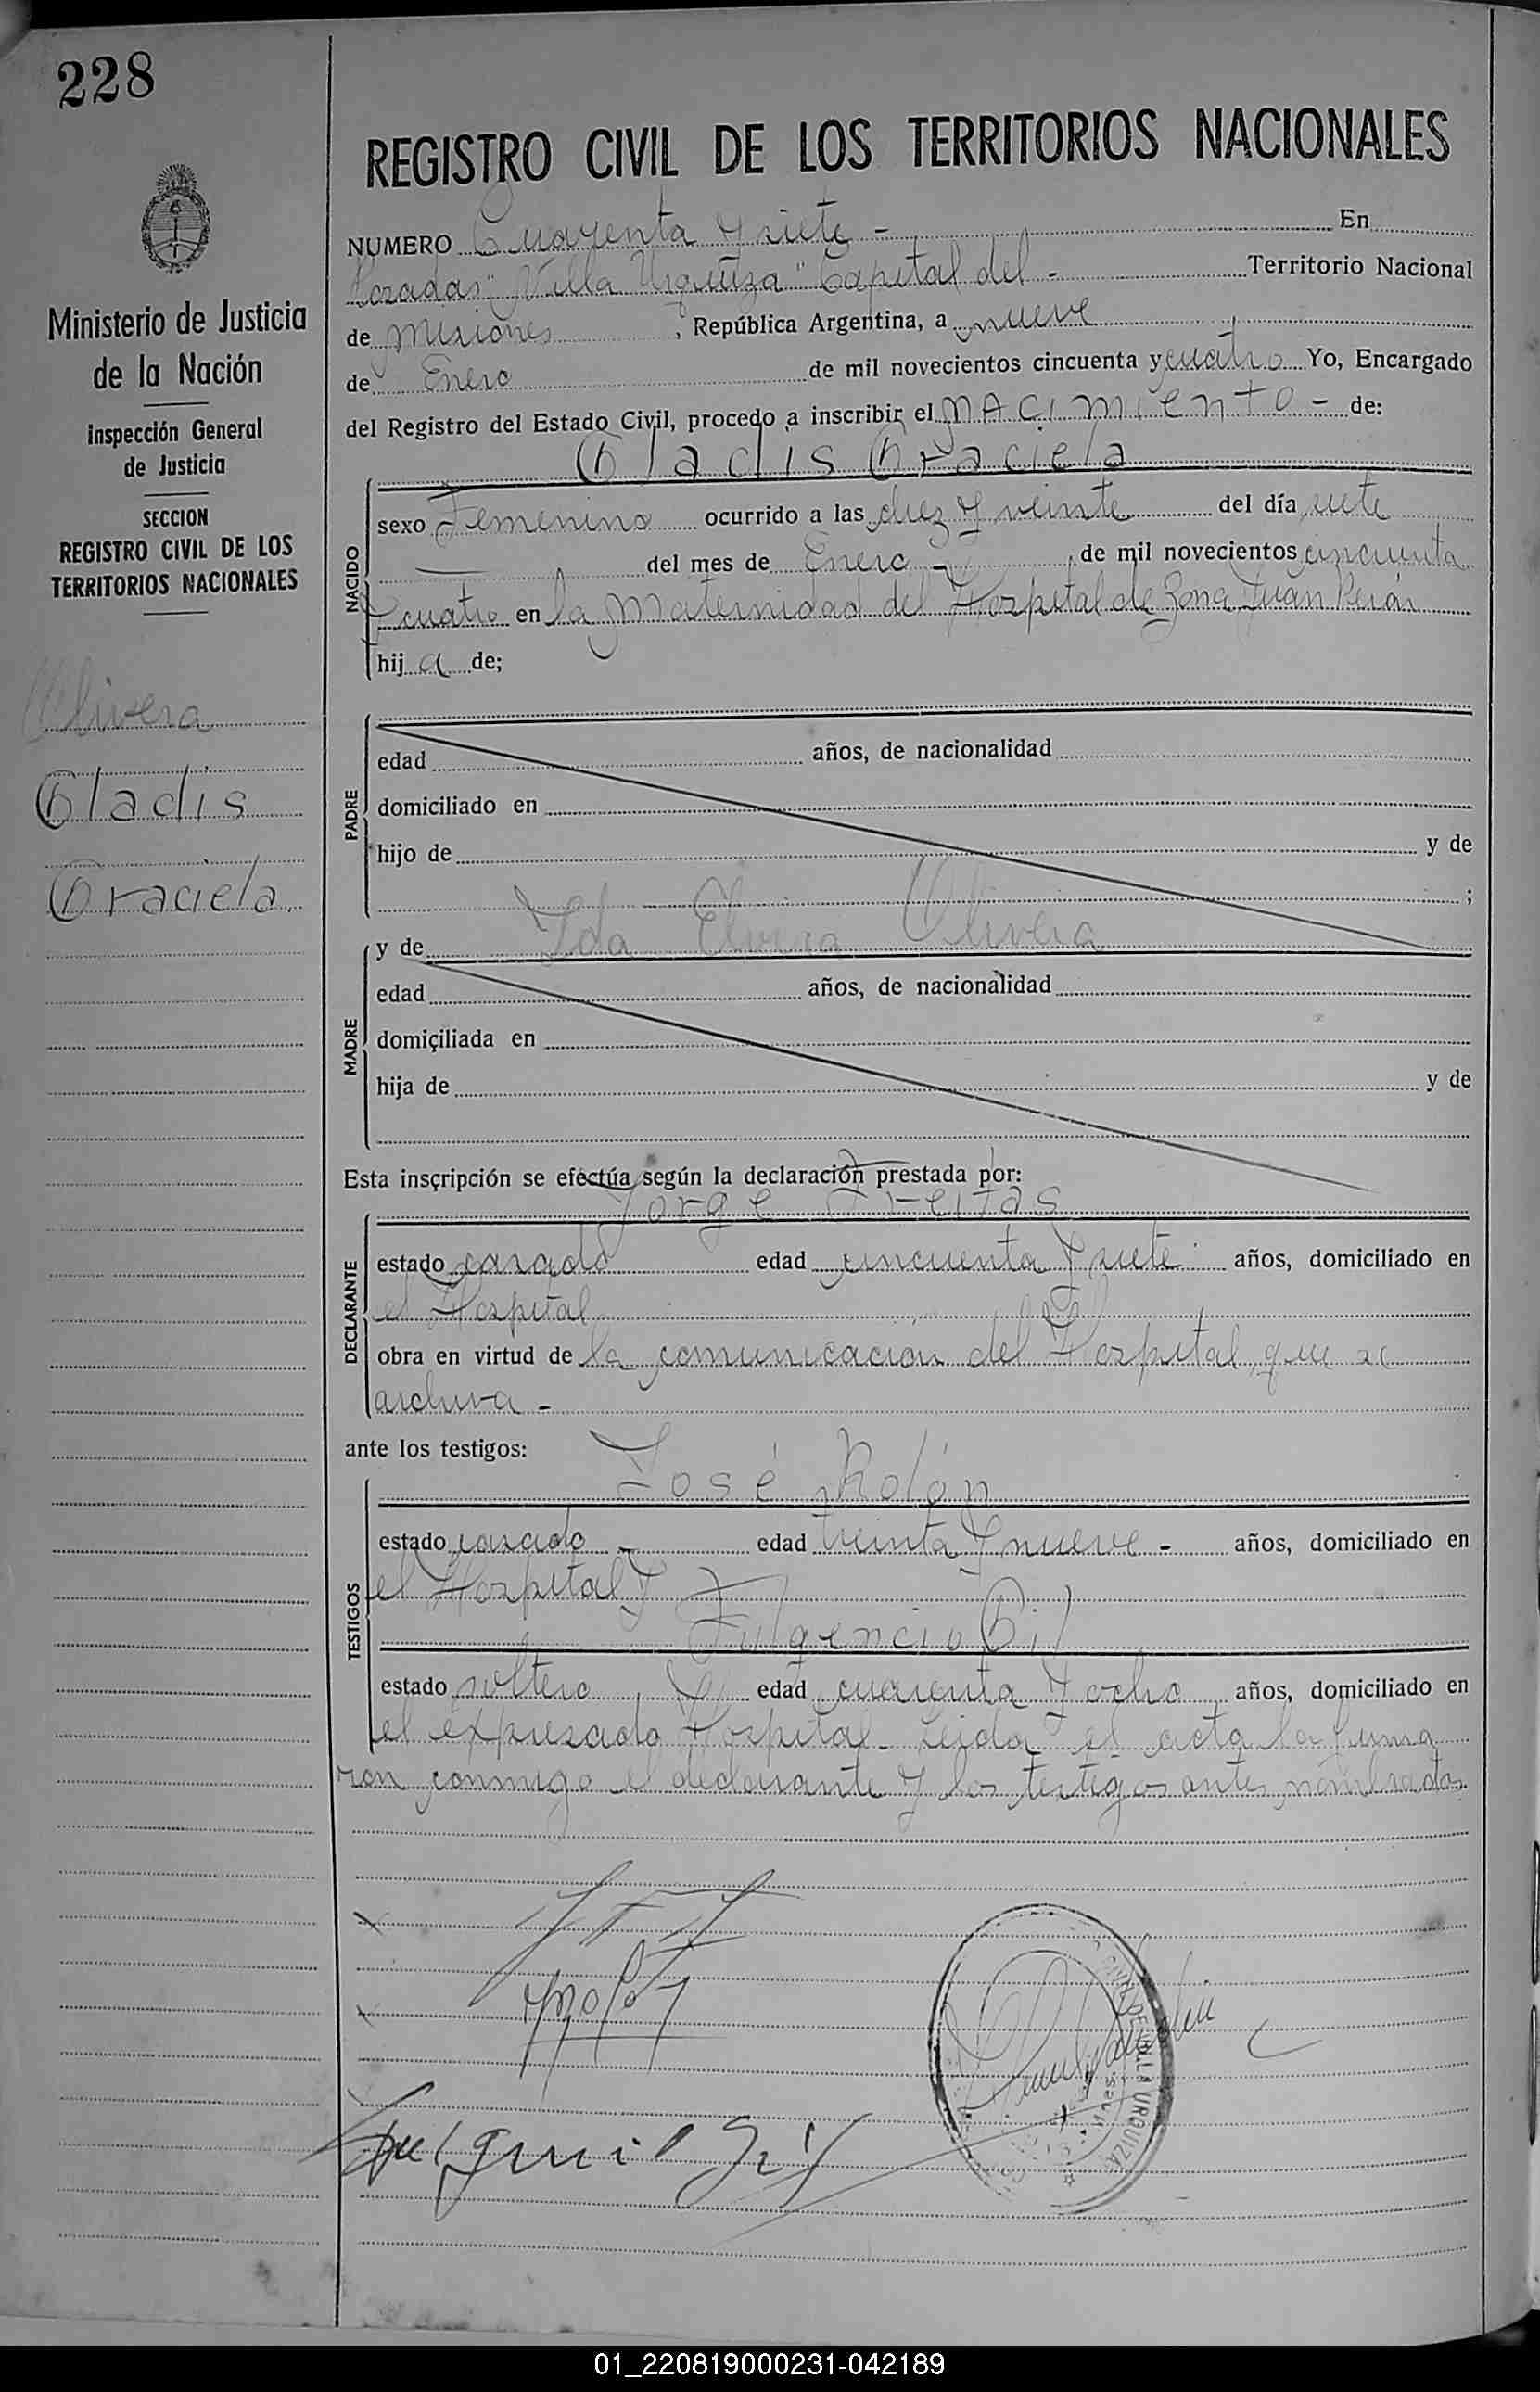 228
Ministerio de Justicia
de la Nación
Inspección General
de Justicia
SECCION
REGISTRO CIVIL DE LOS
TERRITORIOS NACIONALES
Olivera
Gladis
Graciela.
REGISTRO CIVIL DE LOS TERRITORIOS NACIONALES
NUMERO Cuarenta y siete - En
Posadas "Villa Urquiza" Capital del - Territorio Nacional
de Misiones, República Argentina, a nueve
de Enero de mil novecientos cincuenta y cuatro Yo, Encargado
del Registro del Estado Civil, procedo a inscribir el nacimiento - de:
Gladis Graciela
NACIDO
sexo Femenino ocurrido a las diez y veinte del día siete
— del mes de Enero - de mil novecientos cincuenta
y cuatro en la Maternidad del Hospital de Zona Juan Perón
hij a de;
PADRE
edad años, de nacionalidad
domiciliado en
hijo de y de
;
MADRE
y de Ida Elvira Olivera
edad años, de nacionalidad
domiciliada en
hija de y de
Esta inscripción se efectúa según la declaración prestada por:
Jorge Freitas
DECLARANTE
estado casado edad cincuenta y siete años, domiciliado en
el Hospital
obra en virtud de la comunicación del Hospital, que se
archiva -
ante los testigos:
José Rolón
TESTIGOS
estado casado - edad treinta y nueve - años, domiciliado en
el Hospital y
Fulgencio Gil
estado soltero edad cuarenta y ocho años, domiciliado en
el expresado Hospital - Leida el acta la firma
ron conmigo el declarante y los testigos antes nombrados.
Fulgencio Gil
VILLA URQUIZA
01_220819000231-042189